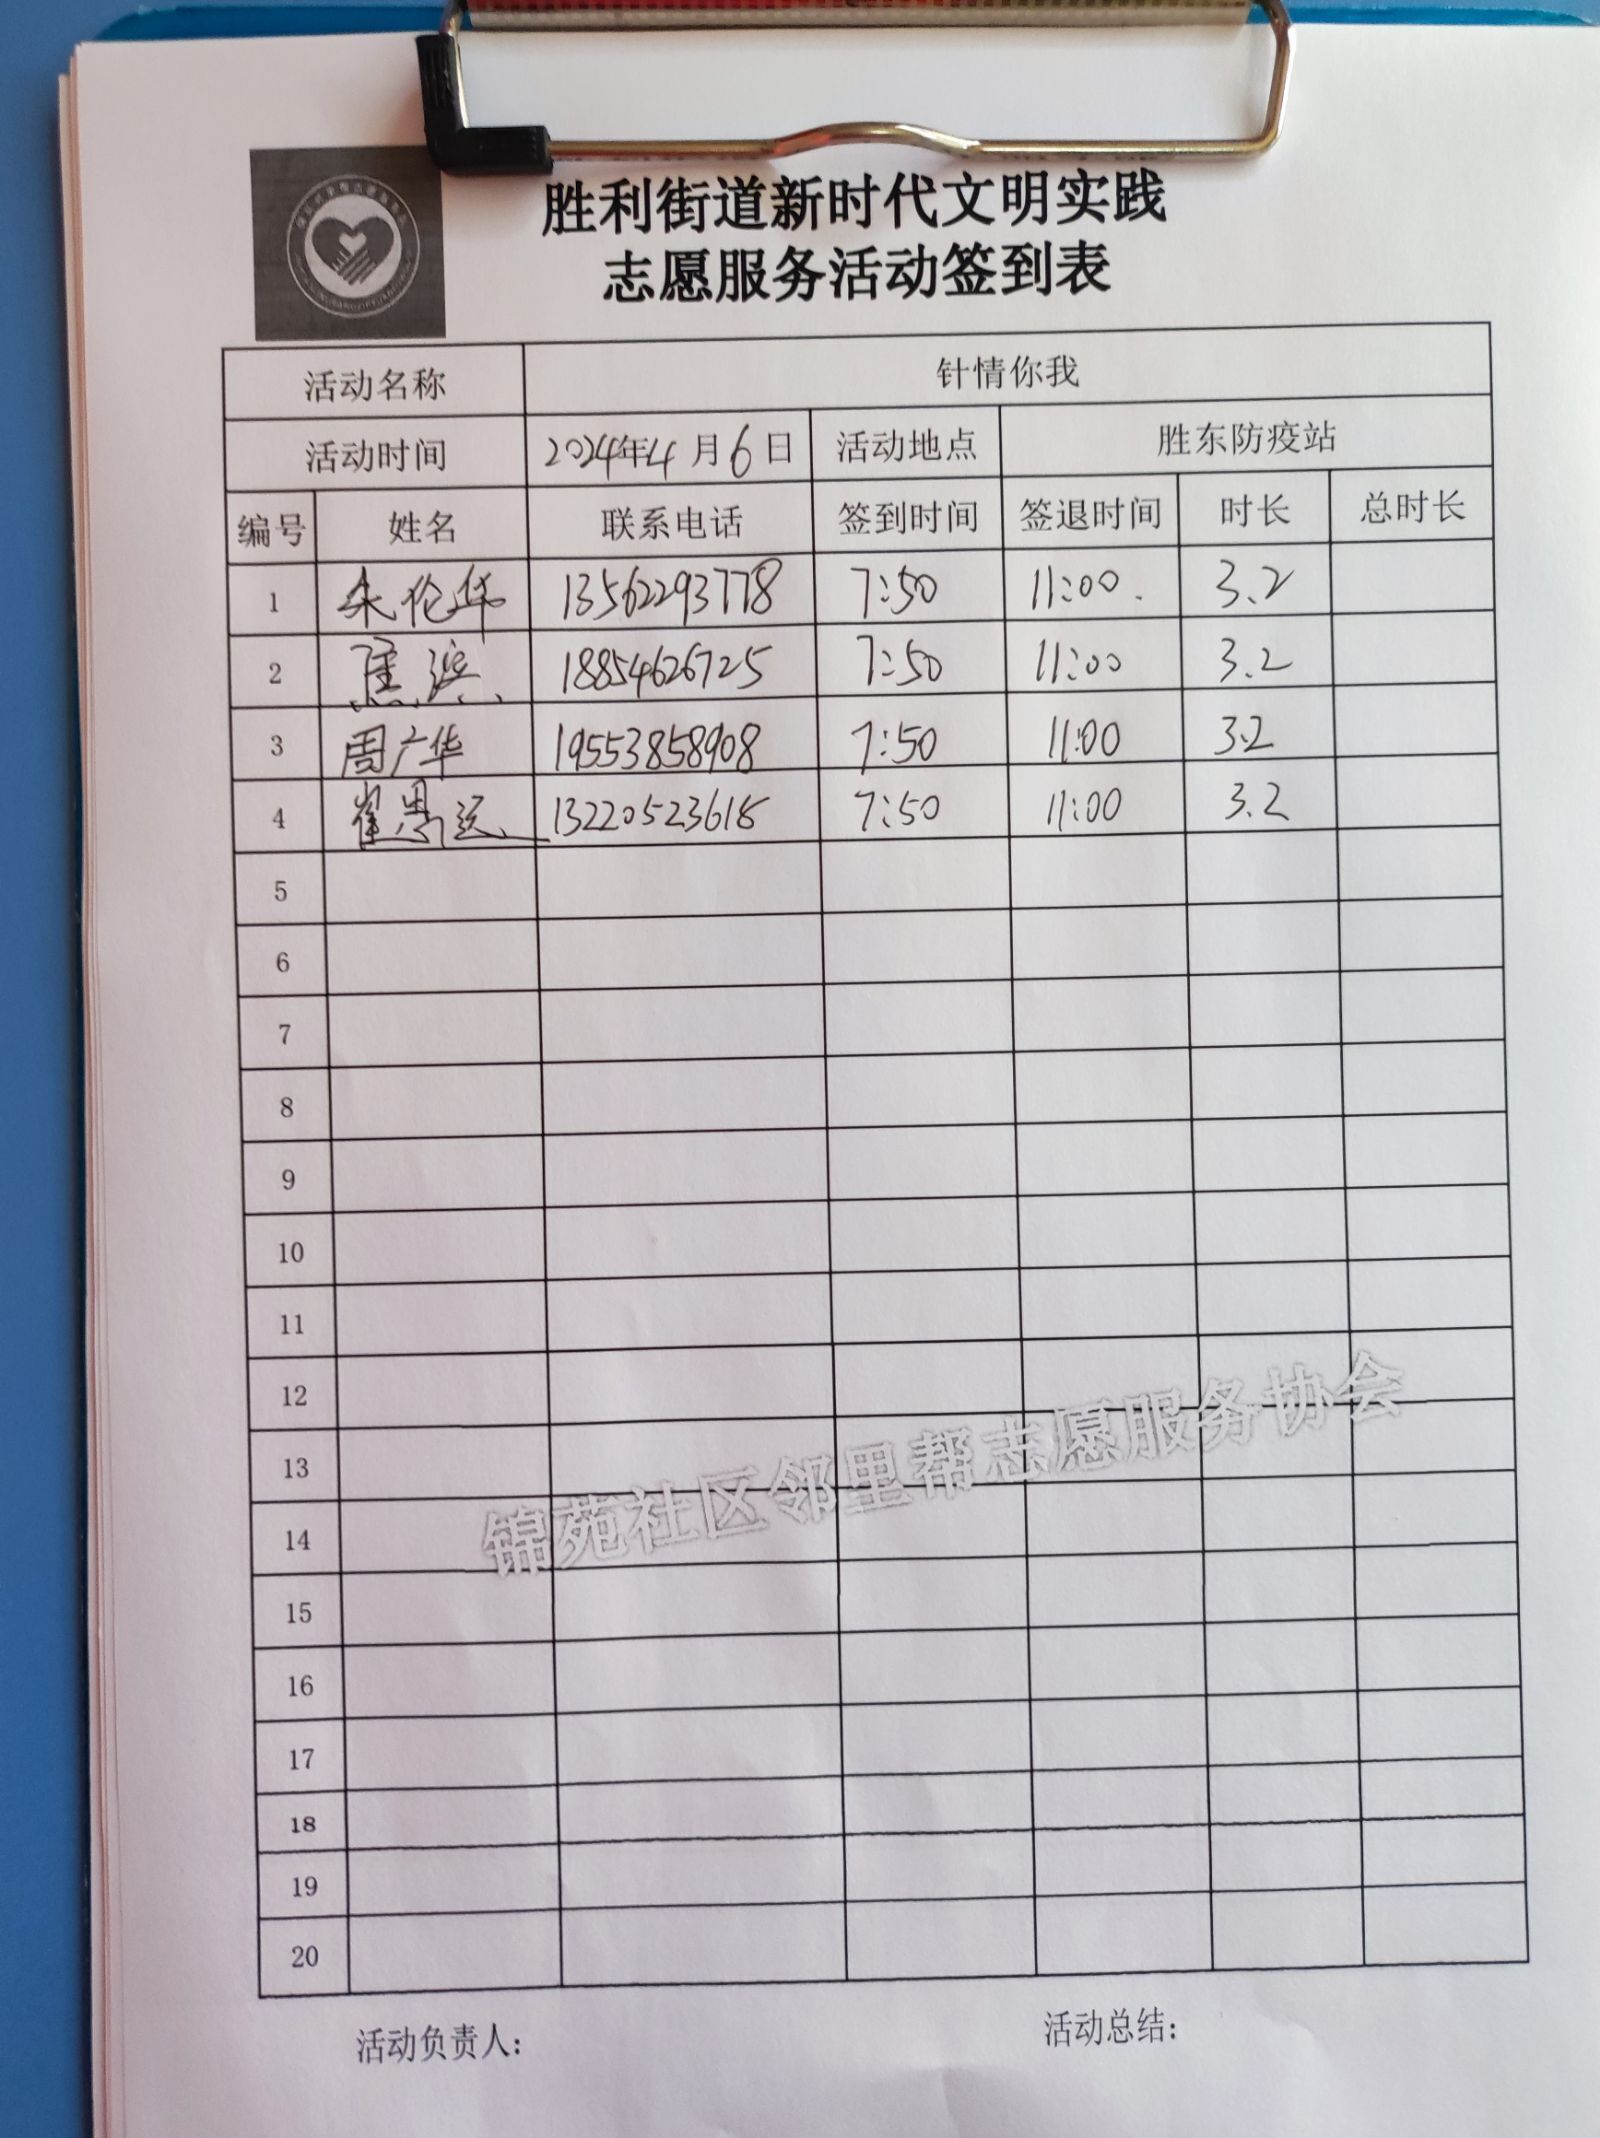 胜利街道新时代文明实践
志愿服务活动签到表
活动名称 针情你我
活动时间 2024年4月6日 活动地点 胜东防疫站
编号 姓名 联系电话 签到时间 签退时间 时长 总时长
1 朱伦华 13562293778 7:50 11:00. 3.2
2 焦滨 18854626725 7:50 11:00 3.2
3 周广华 19553858908 7:50 11:00 3.2
4 崔 13220523618 7:50 11:00 3.2
5
6
7
8
9
10
11
12
13
14
15
16
17
18
19
20
锦苑社区邻里帮志愿服务协会
活动负责人: 活动总结: